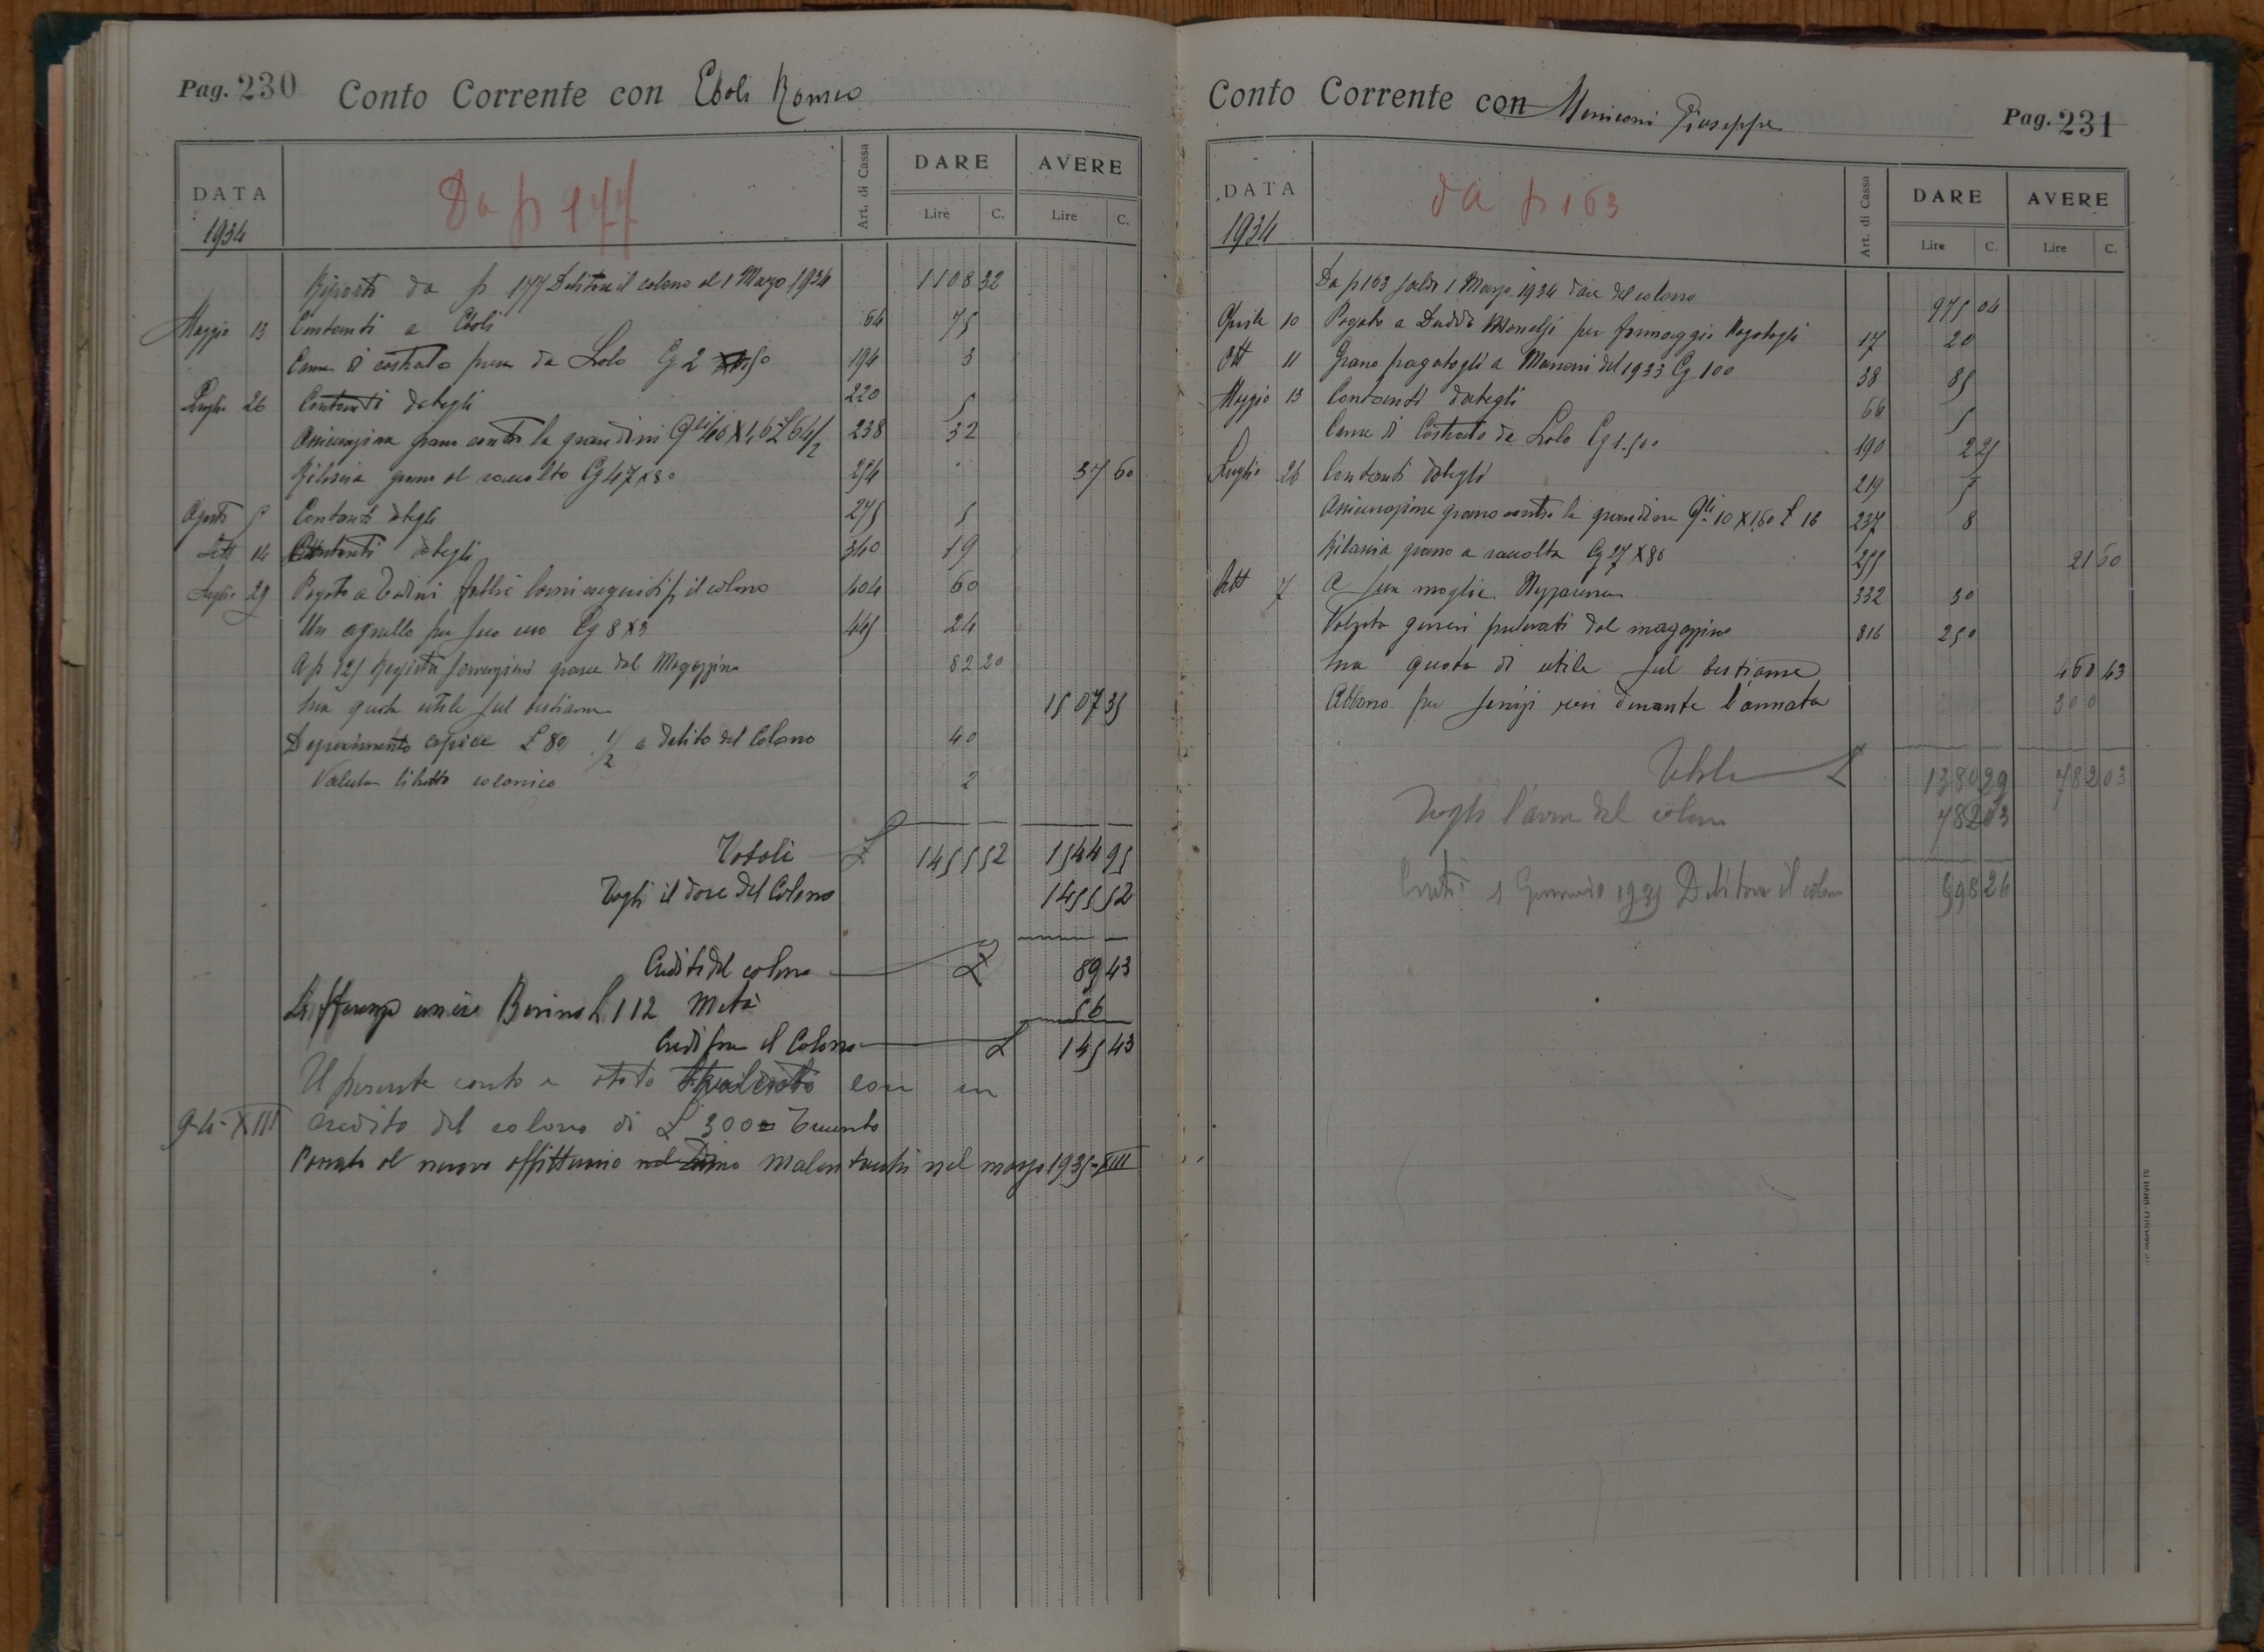 Pag. 230 Conto Corrente con Eboli Romeo
DATA Art. di Cassa DARE AVERE
Lire C. Lire C.
1934
Da p 177
Riporto da p 177 Debitore il colono al 1 Marzo 1934 1108 32
Maggio 13 Contanti a Eboli 64 75
Carne di castrato presa da Lolo Cg 2 194 3
Luglio 26 Contanti dategli 220 5
Assicurazione grano contro la grandini 238 32
Rilascia grano al raccolto Cg 47 x 80 254 37 60
Agosto 5 Contanti dategli 275 5
Sett 14 Contanti dategli 340 19
Luglio 29 Pagato a Todini Fabbro lavori eseguiti p il colono 404 60
Un agnello per suo uso Cg 8 X 3 445 24
A p 125 Registro grasce dal Magazzino 82 20
Sua quota utile sul bestiame 1507 35
Deperimento L 80 1/2 a debito del Colono 40
Valuta libretto colonico 2
Totali L 1455 52 1544 95
Togli il dare del Colono 1455 52
Credito del colono L 89 43
Differenza L 112 Metà 56
Creditore il Colono L 145 43
Il presente conto e stato con un
9-4-XIII credito del colono di L 300= Trecento
Passato al nuovo affittuario nel marzo 1935-XIII
Conto Corrente con Meniconi Giuseppe Pag. 231
DATA Art. di Cassa DARE AVERE
Lire C. Lire C.
1934
da p 163
Da p 163 saldo 1 Marzo 1934 dare del colono 975 04
Aprile 10 Pagato a per formaggio 17 20
11 Grano pagatogli a Mansoni del 1933 Cg 100 38 85
Maggio 13 Contanti dategli 66 5
Carne di Castrato da Lolo Cg 1.500 190 2 25
Luglio 26 Contanti dategli 219 5
Assicurazione grano contro la grandine Qli 10 X 1,60 £ 16 237 8
Rilascia grano a raccolta Cg 27 X 80 255 21 60
Sett 7 A sua moglie 332 30
Valuta generi prelevati dal magazzino 816 250
Sua quota di utile sul bestiame 460 43
Abbono per servizi resi durante l'annata 300
Totale L 1380 29 782 03
Togli l'avere del colono 782 03
1 Gennaio 1935 Debitore il colono 598 26